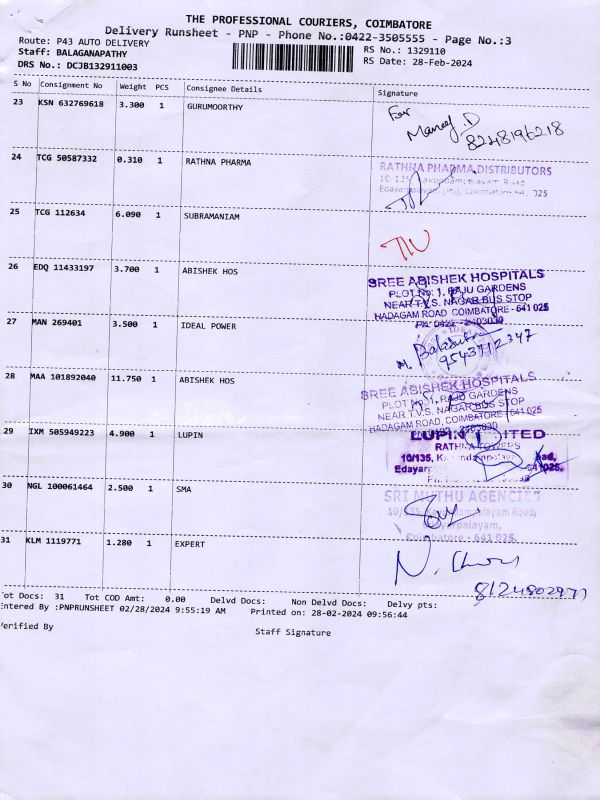 THE PROFESSIONAL COURIERS, COIMBATORE
Delivery Runsheet - PNP - Phone No.:0422-3505555 - Page No.:3
Route: P43 AUTO DELIVERY
Staff: BALAGANAPATHY
DRS No.: DCJB132911003
RS No.: 1329110
RS Date: 28-Feb-2024
S No Consignment No Weight PCS Consignee Details Signature
23 KSN 632769618 3.300 1 GURUMOORTHY
For
Manoj.D
8248196218
24 TCG 50587332 0.310 1 RATHNA PHARMA
RATHNA PHARMA DISTRIBUTORS
25 TCG 112634 6.090 1 SUBRAMANIAM
26 EDQ 11433197 3.700 1 ABISHEK HOS
SREE ABISHEK HOSPITALS
PLOT No: 1, RAJU GARDENS
NEAR T.V.S. NAGAR BUS STOP
HADAGAM ROAD, COIMBATORE - 641 025
PH: 0422 - 2403030
27 MAN 269401 3.500 1 IDEAL POWER
9543712347
28 MAA 101892040 11.750 1 ABISHEK HOS
SREE ABISHEK HOSPITALS
PLOT No: 1, RAJU GARDENS
NEAR T.V.S. NAGAR BUS STOP
HADAGAM ROAD, COIMBATORE - 641 025
29 IXM 505949223 4.900 1 LUPIN
LUPIN LIMITED
RATHNA TOWERS
10/135,
641025.
30 NGL 100061464 2.500 1 SMA
SRI MUTHU AGENCIES
Coimbatore - 641 025.
31 KLM 1119771 1.280 1 EXPERT
8124802977
Tot Docs: 31 Tot COD Amt: 0.00 Delvd Docs: Non Delvd Docs: Delvy pts:
Entered By :PNPRUNSHEET 02/28/2024 9:55:19 AM Printed on: 28-02-2024 09:56:44
Verified By
Staff Signature